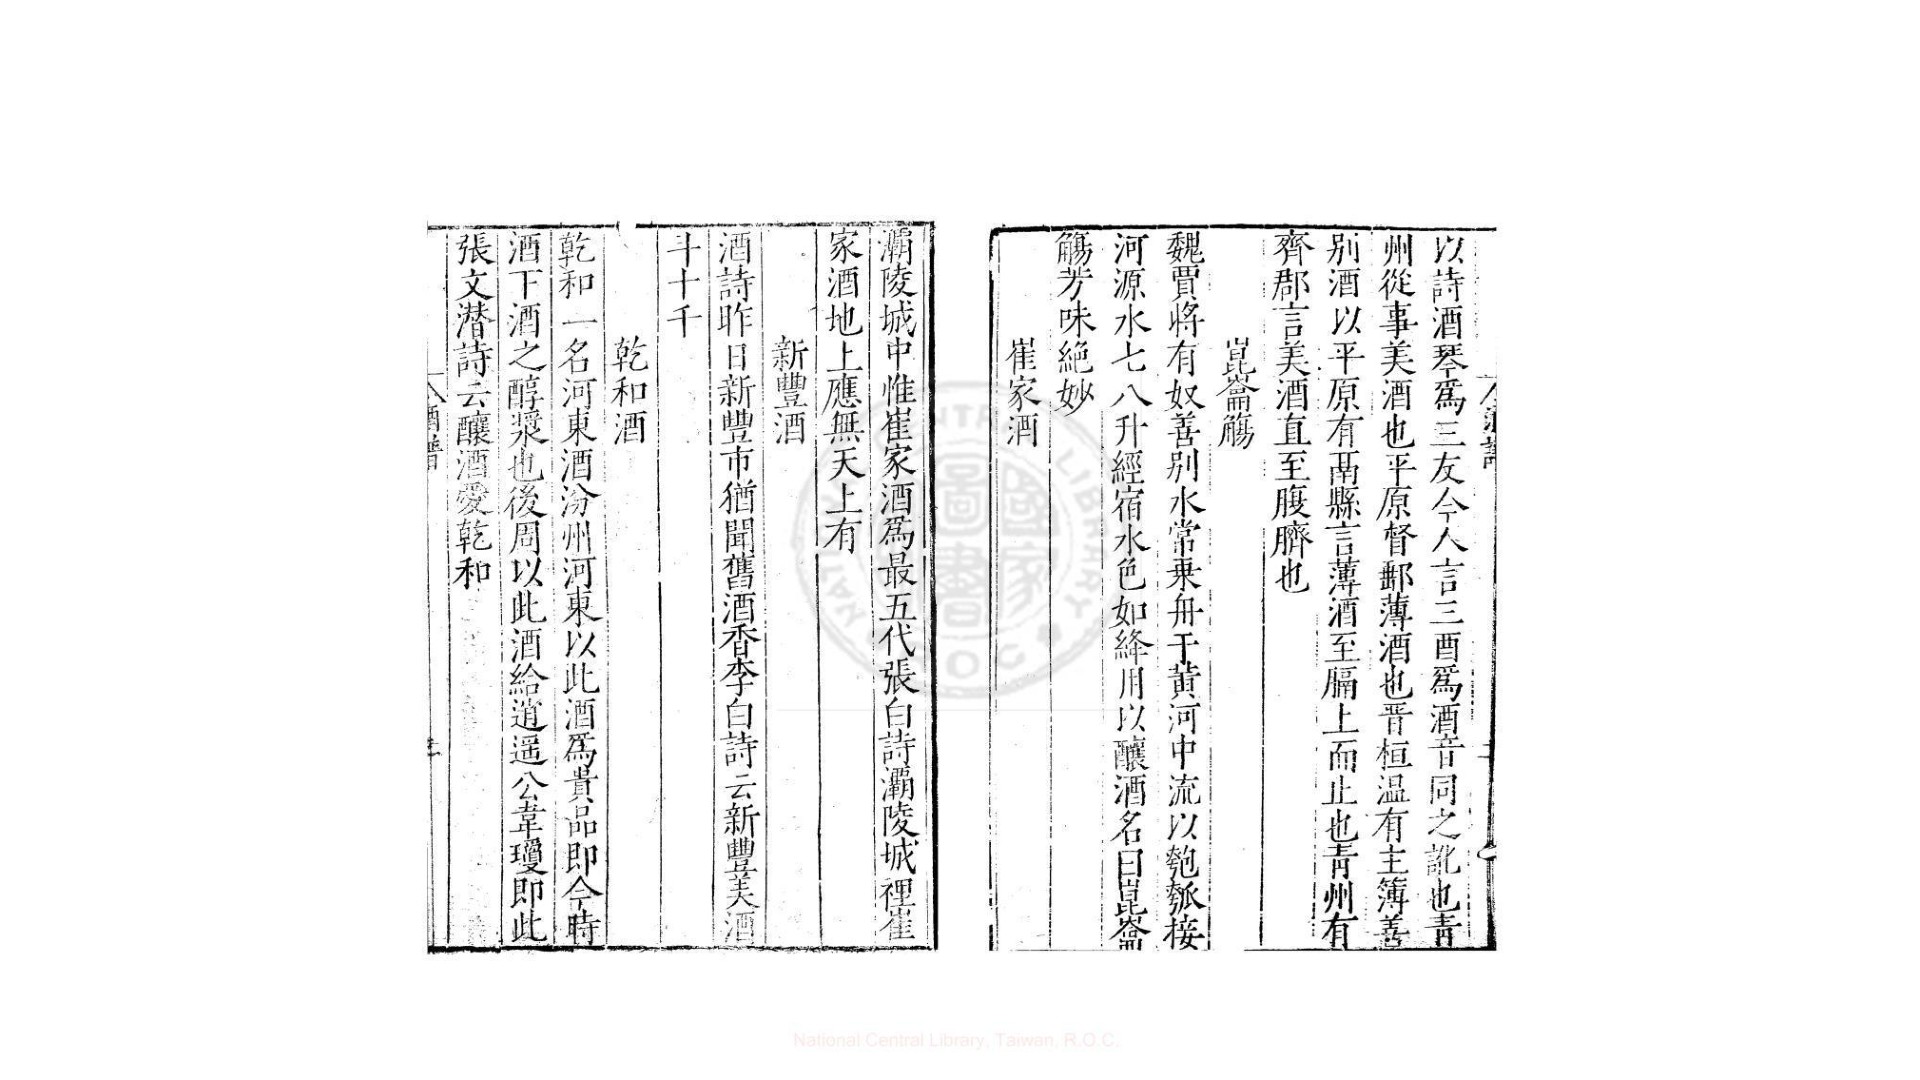 以詩酒琴爲三友今人言三酉爲酒音同之訛也青
州從事美酒也平原督郵薄酒也晋桓温有主簿善
别酒以平原有鬲縣言薄酒至膈上而止也青州有
齊郡言美酒直至腹臍也
崑崙觴
魏賈將有奴善别水常乗舟于黄河中流以匏瓠接
河源水七八升經宿水色如絳用以釀酒名曰崑崙
觴芳味絶妙
崔家酒
灞陵城中惟崔家酒爲最五代張白詩灞陵城裡崔
家酒地上應無天上有
新豐酒
酒詩昨日新豐市猶聞舊酒香李白詩云新豐美酒
斗十千
乾和酒
乾和一名河東酒汾州河東以此酒爲貴品即今時
酒下酒之醇漿也後周以此酒給逍遥公韋瓊即此
張文潜詩云釀酒愛乾和
酒譜
National Central Library, Taiwan, R.O.C.